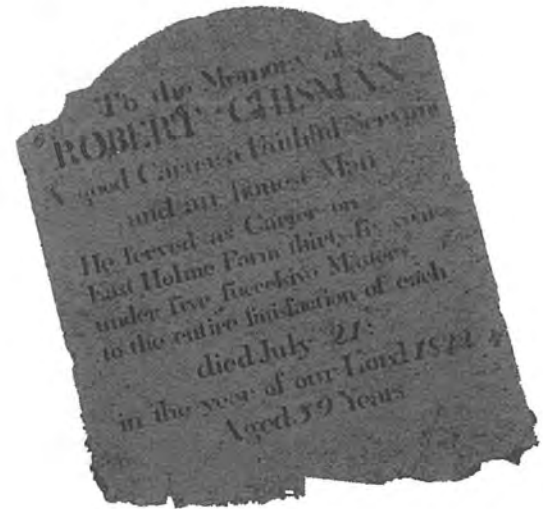 To the Memory of
ROBERT CHISMAN
A good Carter a Faithful Servant
and an honest Man
He served as Carter on
East Holme Farm thirty six years
under five successive Masters
to the entire satisfaction of each
died July 21:
in the year of our Lord 1844
Aged 59 Years